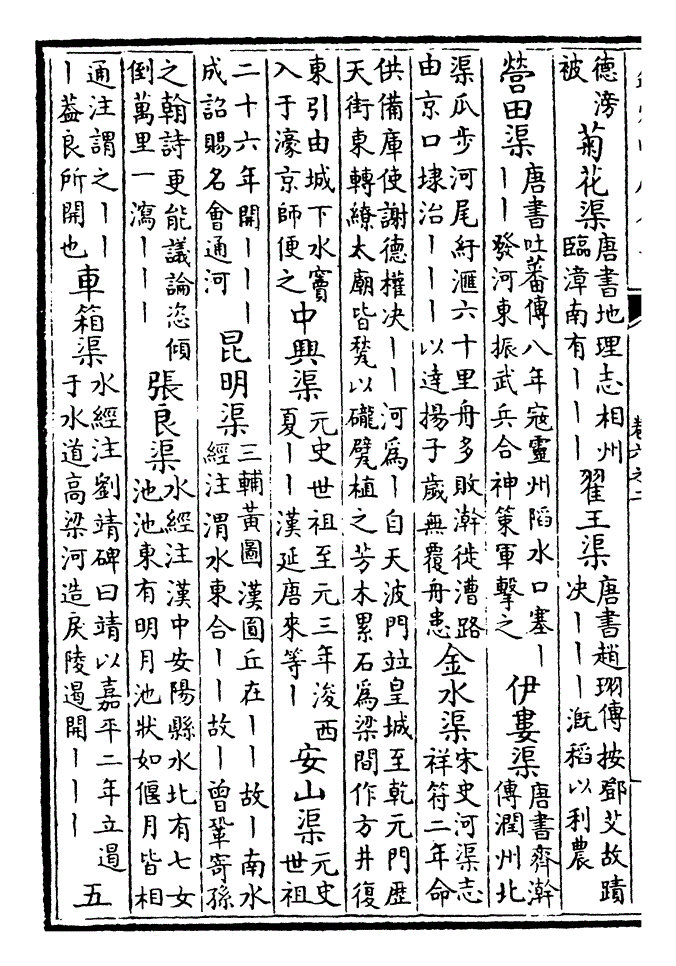 德滂被菊花渠唐書地理志相州臨漳南有丨丨丨翟王渠唐書趙珝傳按鄧艾故蹟决丨丨丨溉稻以利農
營田渠唐書吐蕃傳八年寇靈州䧟水口塞丨丨丨發河東振武兵合神策軍擊之伊婁渠唐書齊澣傳潤州北
渠瓜步河尾紆滙六十里舟多敗澣徙漕路由京口埭治丨丨丨以達揚子歲無覆舟患金水渠宋史河渠志祥符二年命
供備庫使謝德權决丨丨河爲丨自天波門竝皇城至乾元門歴天街東轉繚太廟皆甃以礲甓植之芳木累石爲梁間作方井復
東引由城下水竇入于濠京師便之中興渠元史世祖至元三年浚西夏丨丨漢延唐來等丨安山渠元史世祖
二十六年開丨丨丨成詔賜名會通河昆明渠三輔黃圖漢圓丘在丨丨故丨南水經注渭水東合丨丨故丨曾鞏寄孫
之翰詩更能議論恣傾倒萬里一瀉丨丨丨張良渠水經注漢中安陽縣水北有七女池池東有明月池狀如偃月皆相
通注謂之丨丨丨葢良所開也車箱渠水經注劉靖碑曰靖以嘉平二年立遏于水道高梁河造戾陵遏開丨丨丨
五